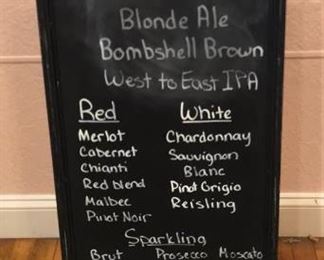 Blonde Ale
Bombshell Brown
West to East IPA
Red
Merlot
Cabernet
Chianti
Red blend
Malbec
Pinot Noir
White
Chardonnay
Sauvignon
Blanc
Pinot Grigio
Reisling
Sparkling
Brut Prosecco Moscato